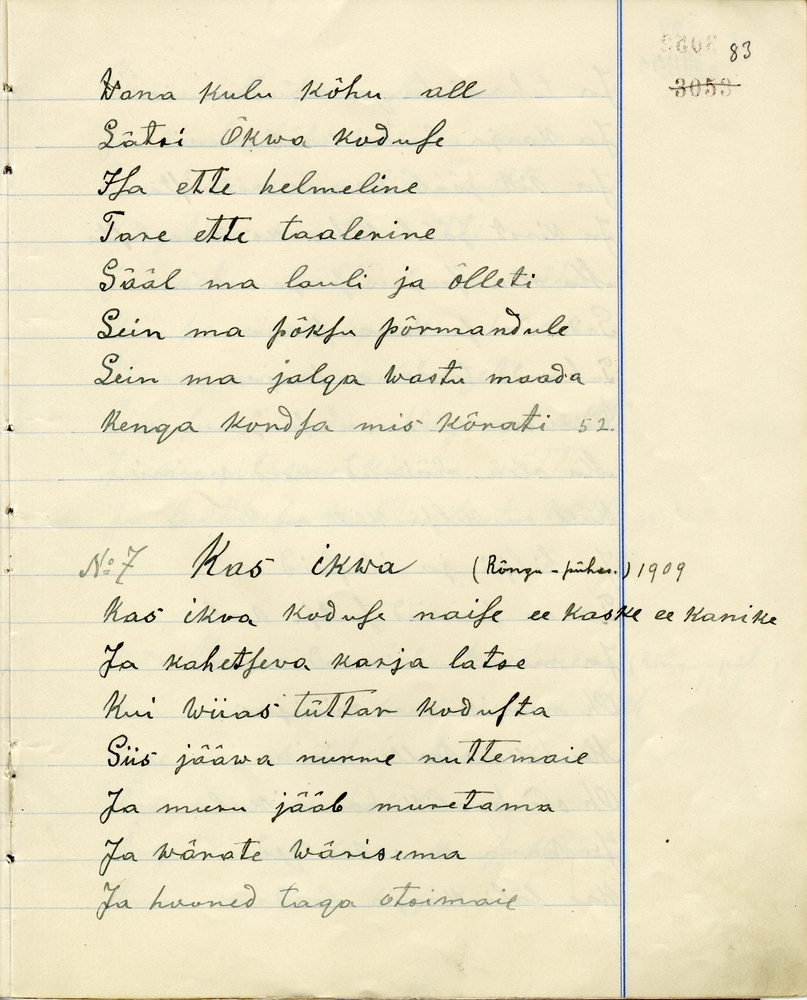 83
3053
Wana kulu kõhu all
Lätsi Õkwa koduſe
Iſa ette helmeline
Tare ette taalerine
Sääl ma lauli ja õlleti
Lein ma põkſu põrmandule
Lein ma jalga wastu maada
Kenga kordſa mis kõrati 52.
№ 7 Kas ikwa (Rõngu-pühas.) 1909
Kas ikva koduſe naiſe ee kaske ee kanike
Ja kahetſeva karja latse
Kui wiias tüttar koduſta
Siis jääwa nurme nuttemaie
Ja muru jääb muretama
Ja wärate wärisema
Ja hooned taga otsimaie